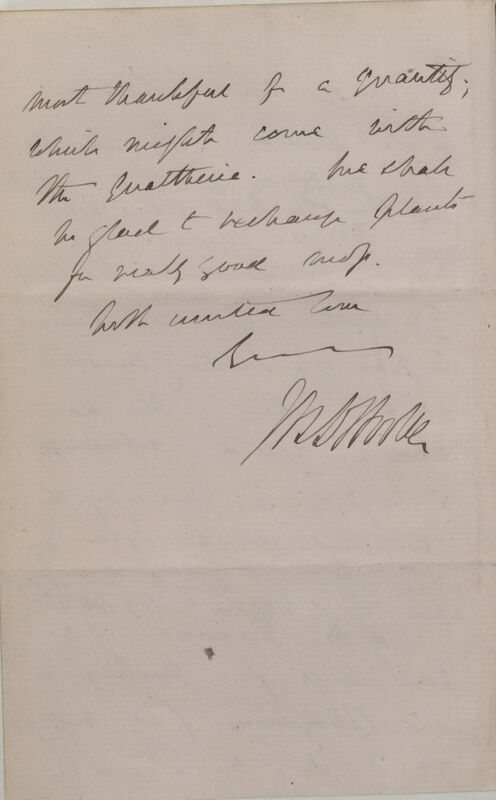 most thankful for a quantity,
which might come with
the Gualtheria. We shall
be glad to exchange plants
for really good moss.
With united love
JosDHooker